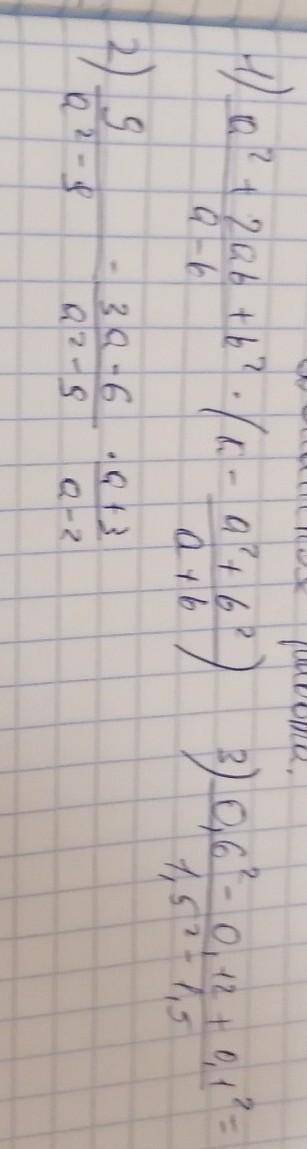 работа.
1) (a² + 2ab + b²)/(a - b) · ( - (a² + b²)/(a + b))
3) (0,6² - 0,12 + 0,1²)/(1,5² - 1,5) =
2) 9/(a² - 9) - (3a - 6)/(a² - 9) · (a + 3)/(a - 2)